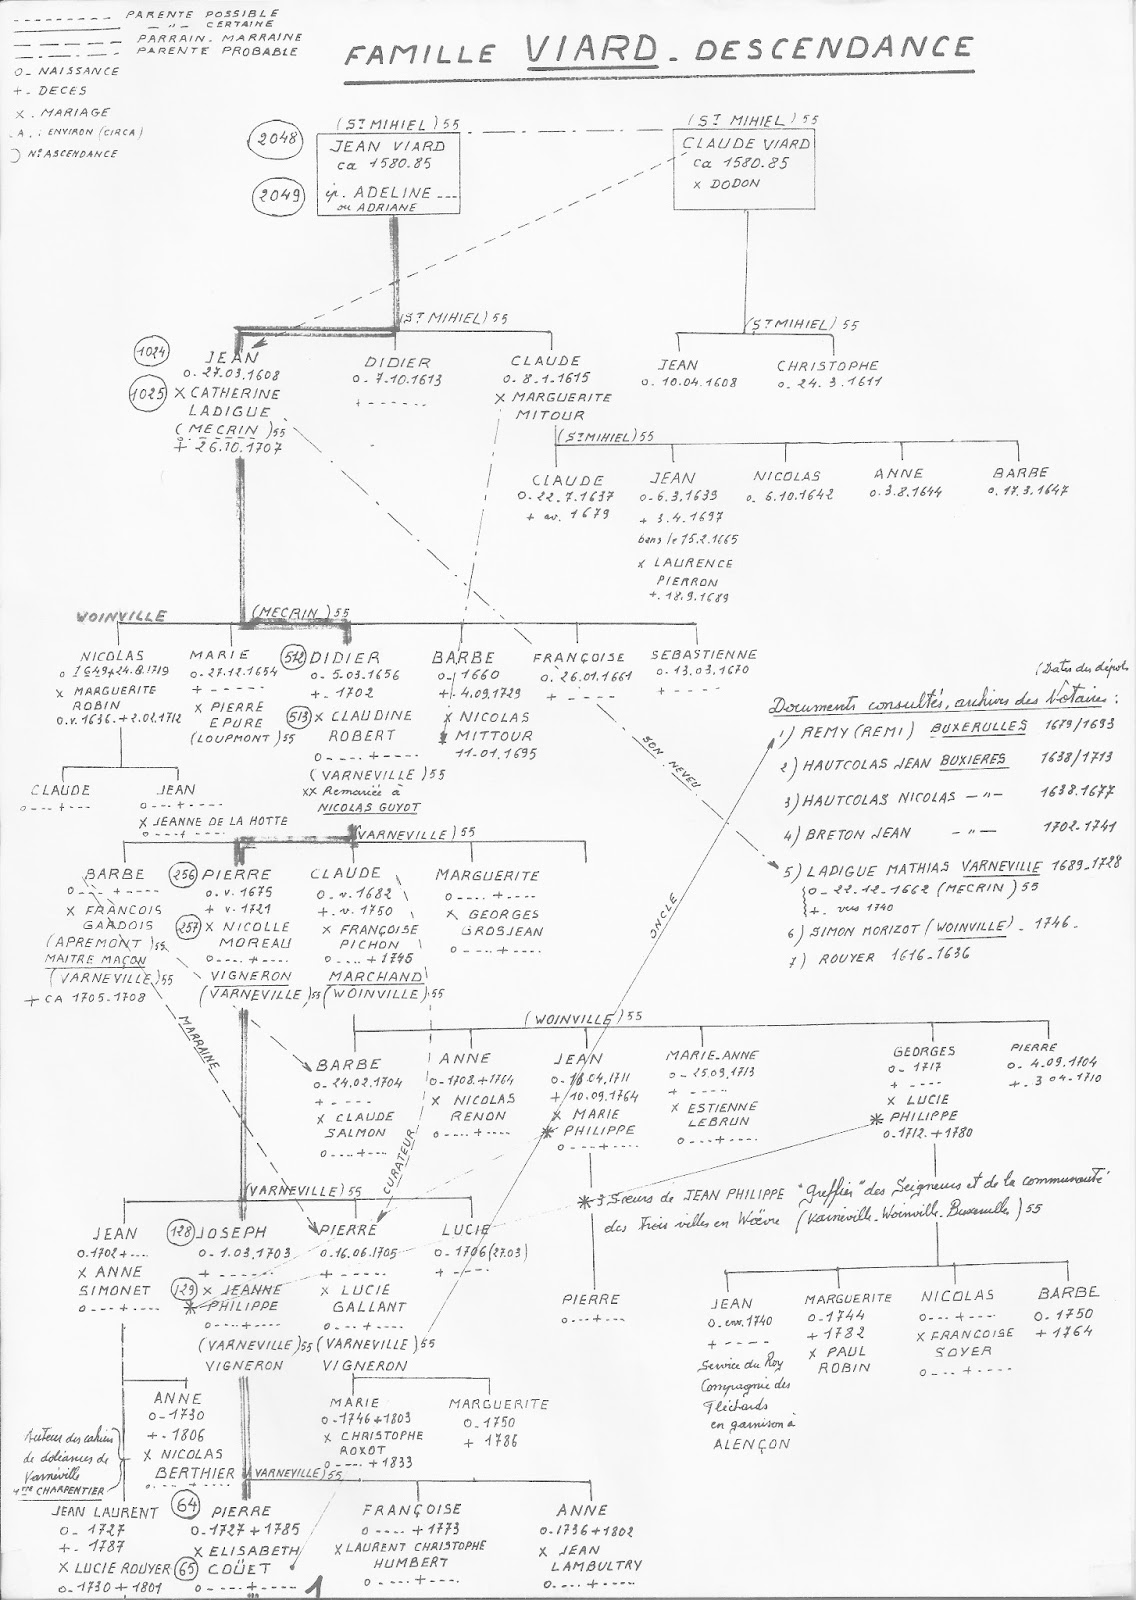 PARENTE POSSIBLE
— "— CERTAINE
PARRAIN. MARRAINE
PARENTE PROBABLE
O- NAISSANCE
+- DECES
X. MARIAGE
.A.: ENVIRON (CIRCA)
N° ASCENDANCE
FAMILLE VIARD - DESCENDANCE
(ST MIHIEL) 55
2048
JEAN VIARD
ca 1580.85
2049
ép. ADELINE ---
ou ADRIANE
(ST MIHIEL) 55
CLAUDE VIARD
ca 1580.85
x DODON
(ST MIHIEL) 55
1024
JEAN
o. 27.03.1608
1025
X CATHERINE
LADIGUE
(MECRIN) 55
+ 26.10.1707
DIDIER
o. 7.10.1613
+ ------
CLAUDE
o. 8.1.1615
X MARGUERITE
MITOUR
(ST MIHIEL) 55
JEAN
o. 10.04.1608
CHRISTOPHE
o. 24.3.1611
(ST MIHIEL) 55
CLAUDE
o. 22.7.1637
+ av. 1679
JEAN
o. 6.3.1639
+ 3.4.1697
bans le 15.2.1665
x LAURENCE
PIERRON
+. 18.9.1689
NICOLAS
o. 6.10.1642
ANNE
o. 3.8.1644
BARBE
o. 17.3.1647
WOINVILLE
(MECRIN) 55
NICOLAS
o 1649+24.8.1719
x MARGUERITE
ROBIN
o.v. 1636.+2.02.1712
MARIE
o. 27.12.1654
+ -----
x PIERRE
EPURE
(LOUPMONT) 55
512
DIDIER
o. 5.03.1656
+. 1702
513
X CLAUDINE
ROBERT
o----+----
(VARNEVILLE) 55
XX Remariée à
NICOLAS GUYOT
BARBE
o. 1660
+ 4.09.1729
x NICOLAS
MITTOUR
11.01.1695
FRANÇOISE
o. 26.01.1661
+ - - - -
SEBASTIENNE
o. 13.03.1670
+ - - - -
SON NEVEU
(Dates du dépôt
Documents consultés, archives des Notaires :
1) REMY (REMI) BUXERULLES 1679/1693
2) HAUTCOLAS JEAN BUXIERES 1638/1713
3) HAUTCOLAS NICOLAS — " — 1638.1677
4) BRETON JEAN — " — 1702-1741
5) LADIGUE MATHIAS VARNEVILLE 1689-1728
O- 22.12-1662 (MECRIN) 55
+. vers 1740
6) SIMON MORIZOT (WOINVILLE) - 1746-
7) ROUYER 1616-1636
CLAUDE
o---+---
JEAN
o----+----
x JEANNE DE LA HOTTE
o---+----
(VARNEVILLE) 55
BARBE
o---+----
x FRANCOIS
GARDOIS
(APREMONT) 55
MAITRE MAÇON
(VARNEVILLE) 55
+ CA 1705-1708
256
PIERRE
o.v. 1675
+ v. 1721
257
X NICOLLE
MOREAU
o----+----
VIGNERON
(VARNEVILLE) 55
CLAUDE
o.v. 1682
+.v. 1750
x FRANÇOISE
PICHON
o----+ 1745
MARCHAND
(WOINVILLE) 55
MARGUERITE
o---+----
x GEORGES
GROSJEAN
o---+----
ONCLE
MARRAINE
CURATEUR
(WOINVILLE) 55
BARBE
o-24.02.1704
+ -----
x CLAUDE
SALMON
o----+----
ANNE
o-1708.+1764
x NICOLAS
RENON
o----+----
JEAN
o-18.04.1711
+ 10.09.1764
x MARIE
* PHILIPPE
o----+---
MARIE-ANNE
o-25.09.1713
+ -----
x ESTIENNE
LEBRUN
o---+----
GEORGES
o- 1717
+ ----
x LUCIE
* PHILIPPE
o-1712.+1780
PIERRE
o- 4.09.1704
+. 3 04.1710
* 3 Sœurs de JEAN PHILIPPE "Greffier" des Seigneurs et de la communauté
des Trois villes en Woëvre (Varnéville-Woinville-Buxerulles) 55
(VARNEVILLE) 55
JEAN
o.1702+----
X ANNE
SIMONET
o---+---
128
JOSEPH
o-1.03.1703
+ -----
129
X JEANNE
* PHILIPPE
o----+----
(VARNEVILLE) 55
VIGNERON
PIERRE
o.16.06.1705
+ -----
x LUCIE
GALLANT
o----+----
(VARNEVILLE) 55
VIGNERON
LUCIE
o- 1706 (27.03)
+ ------
PIERRE
o---+---
JEAN
o. env. 1740
+ -----
Service du Roy
Compagnie des
Fléchards
en garnison à
ALENÇON
MARGUERITE
o-1744
+ 1782
x PAUL
ROBIN
NICOLAS
o---+---
x FRANCOISE
SOYER
o---+----
BARBE
o. 1750
+ 1764
ANNE
o-1730
+- 1806
x NICOLAS
BERTHIER
o----+----
MARIE
o-1746+1803
x CHRISTOPHE
ROXOT
o----+1833
MARGUERITE
o-1750
+ 1786
Auteur des cahiers
de doléances de
Varnéville
CHARPENTIER
(VARNEVILLE) 55
JEAN LAURENT
o- 1727
+. 1787
X LUCIE ROUYER
o-1730+1801
64
PIERRE
o-1727+1785
65
X ELISABETH
COÜET
o----+----
1
FRANÇOISE
o----+1773
x LAURENT CHRISTOPHE
HUMBERT
o----+----
ANNE
o-1736+1802
x JEAN
LAMBULTRY
o----+----